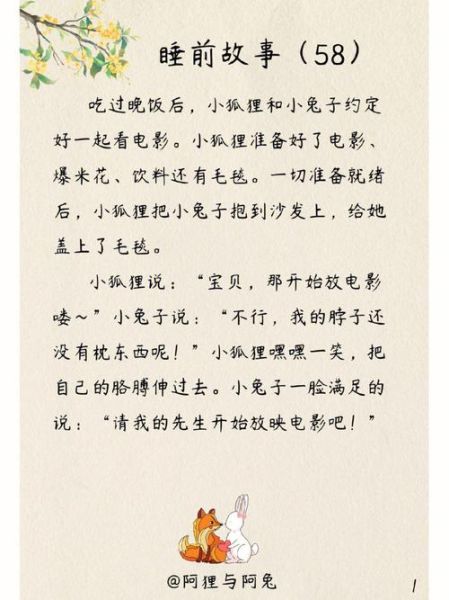 睡前故事（58）
吃过晚饭后，小狐狸和小兔子约定
好一起看电影。小狐狸准备好了电影、
爆米花、饮料还有毛毯。一切准备就绪
后，小狐狸把小兔子抱到沙发上，给她
盖上了毛毯。
小狐狸说：“宝贝，那开始放电影
喽～”小兔子说：“不行，我的脖子还
没有枕东西呢！”小狐狸嘿嘿一笑，把
自己的胳膊伸过去。小兔子一脸满足的
说：“请我的先生开始放映电影吧！”
@阿狸与阿兔
1